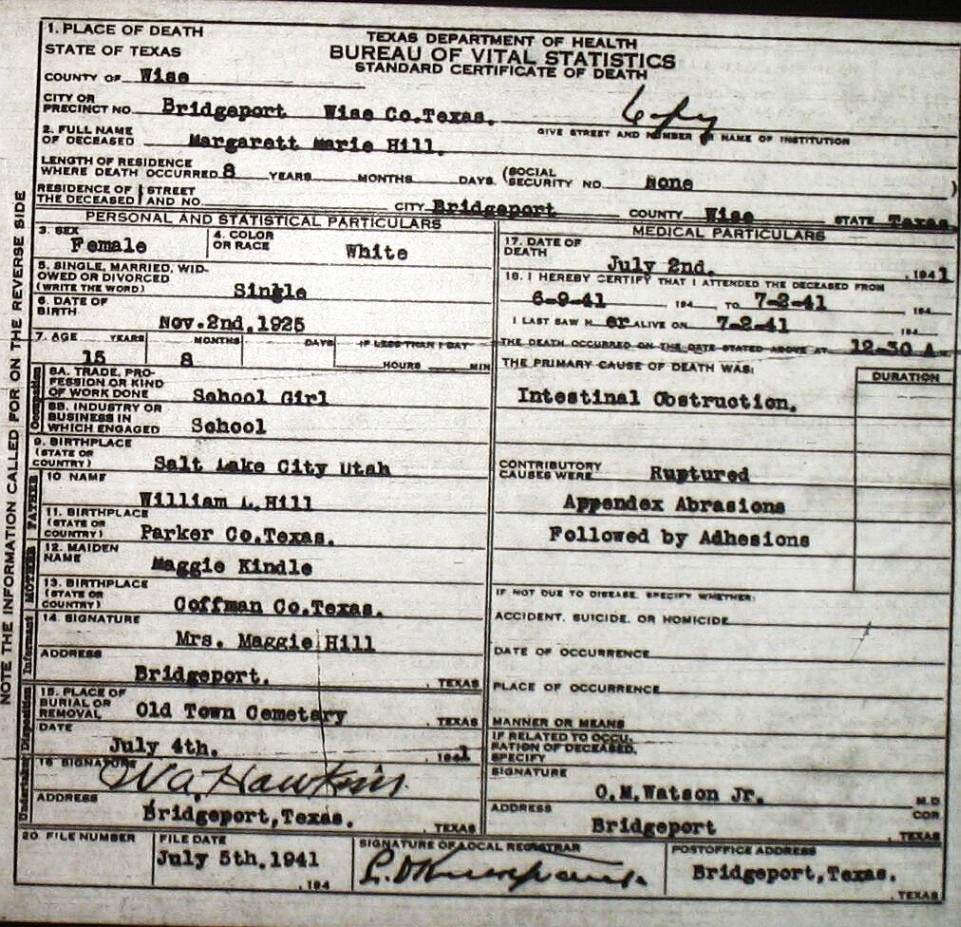 1. PLACE OF DEATH
STATE OF TEXAS
TEXAS DEPARTMENT OF HEALTH
BUREAU OF VITAL STATISTICS
STANDARD CERTIFICATE OF DEATH
COUNTY OF Wise
CITY OR PRECINCT NO. Bridgeport Wise Co.Texas.
Copy
GIVE STREET AND NUMBER OR NAME OF INSTITUTION
2. FULL NAME OF DECEASED Margarett Marie Hill.
LENGTH OF RESIDENCE WHERE DEATH OCCURRED 8 YEARS MONTHS DAYS. (SOCIAL SECURITY NO. None )
RESIDENCE OF THE DECEASED STREET AND NO. CITY Bridgeport COUNTY Wise STATE Texas.
PERSONAL AND STATISTICAL PARTICULARS
3. SEX Female
4. COLOR OR RACE White
5. SINGLE, MARRIED, WIDOWED OR DIVORCED (WRITE THE WORD) Single
6. DATE OF BIRTH Nov.2nd,1925
7. AGE YEARS MONTHS DAYS IF LESS THAN 1 DAY
15 8 HOURS MIN
8A. TRADE, PROFESSION OR KIND OF WORK DONE School Girl
8B. INDUSTRY OR BUSINESS IN WHICH ENGAGED School
9. BIRTHPLACE (STATE OR COUNTRY) Salt Lake City Utah
10 NAME William L.Hill
11. BIRTHPLACE (STATE OR COUNTRY) Parker Co.Texas.
12. MAIDEN NAME Maggie Kindle
13. BIRTHPLACE (STATE OR COUNTRY) Coffman Co.Texas.
14. SIGNATURE Mrs. Maggie Hill
ADDRESS Bridgeport. , TEXAS
15. PLACE OF BURIAL OR REMOVAL Old Town Cemetary , TEXAS
DATE July 4th. , 1941
16 SIGNATURE Hawkins
ADDRESS Bridgeport,Texas. , TEXAS
Occupation
FATHER
MOTHER
Informant
Disposition
Undertaker
NOTE THE INFORMATION CALLED FOR ON THE REVERSE SIDE
MEDICAL PARTICULARS
17. DATE OF DEATH July 2nd. , 1941
18. I HEREBY CERTIFY THAT I ATTENDED THE DECEASED FROM
6-9-41 194 TO 7-2-41 194
I LAST SAW H er ALIVE ON 7-2-41 194
THE DEATH OCCURRED ON THE DATE STATED ABOVE AT 12-30 A M.
THE PRIMARY CAUSE OF DEATH WAS: DURATION
Intestinal Obstruction.
CONTRIBUTORY CAUSES WERE Ruptured
Appendex Abrasions
Followed by Adhesions
IF NOT DUE TO DISEASE, SPECIFY WHETHER:
ACCIDENT, SUICIDE, OR HOMICIDE
DATE OF OCCURRENCE
PLACE OF OCCURRENCE
MANNER OR MEANS
IF RELATED TO OCCUPATION OF DECEASED, SPECIFY
SIGNATURE O.M.Watson Jr. M.D COR
ADDRESS Bridgeport , TEXAS
20. FILE NUMBER
FILE DATE
July 5th.1941
, 194
SIGNATURE OF LOCAL REGISTRAR
POSTOFFICE ADDRESS
Bridgeport,Texas.
, TEXAS